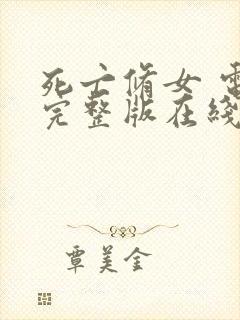 死亡修女 電
完整版在綫
覃美金